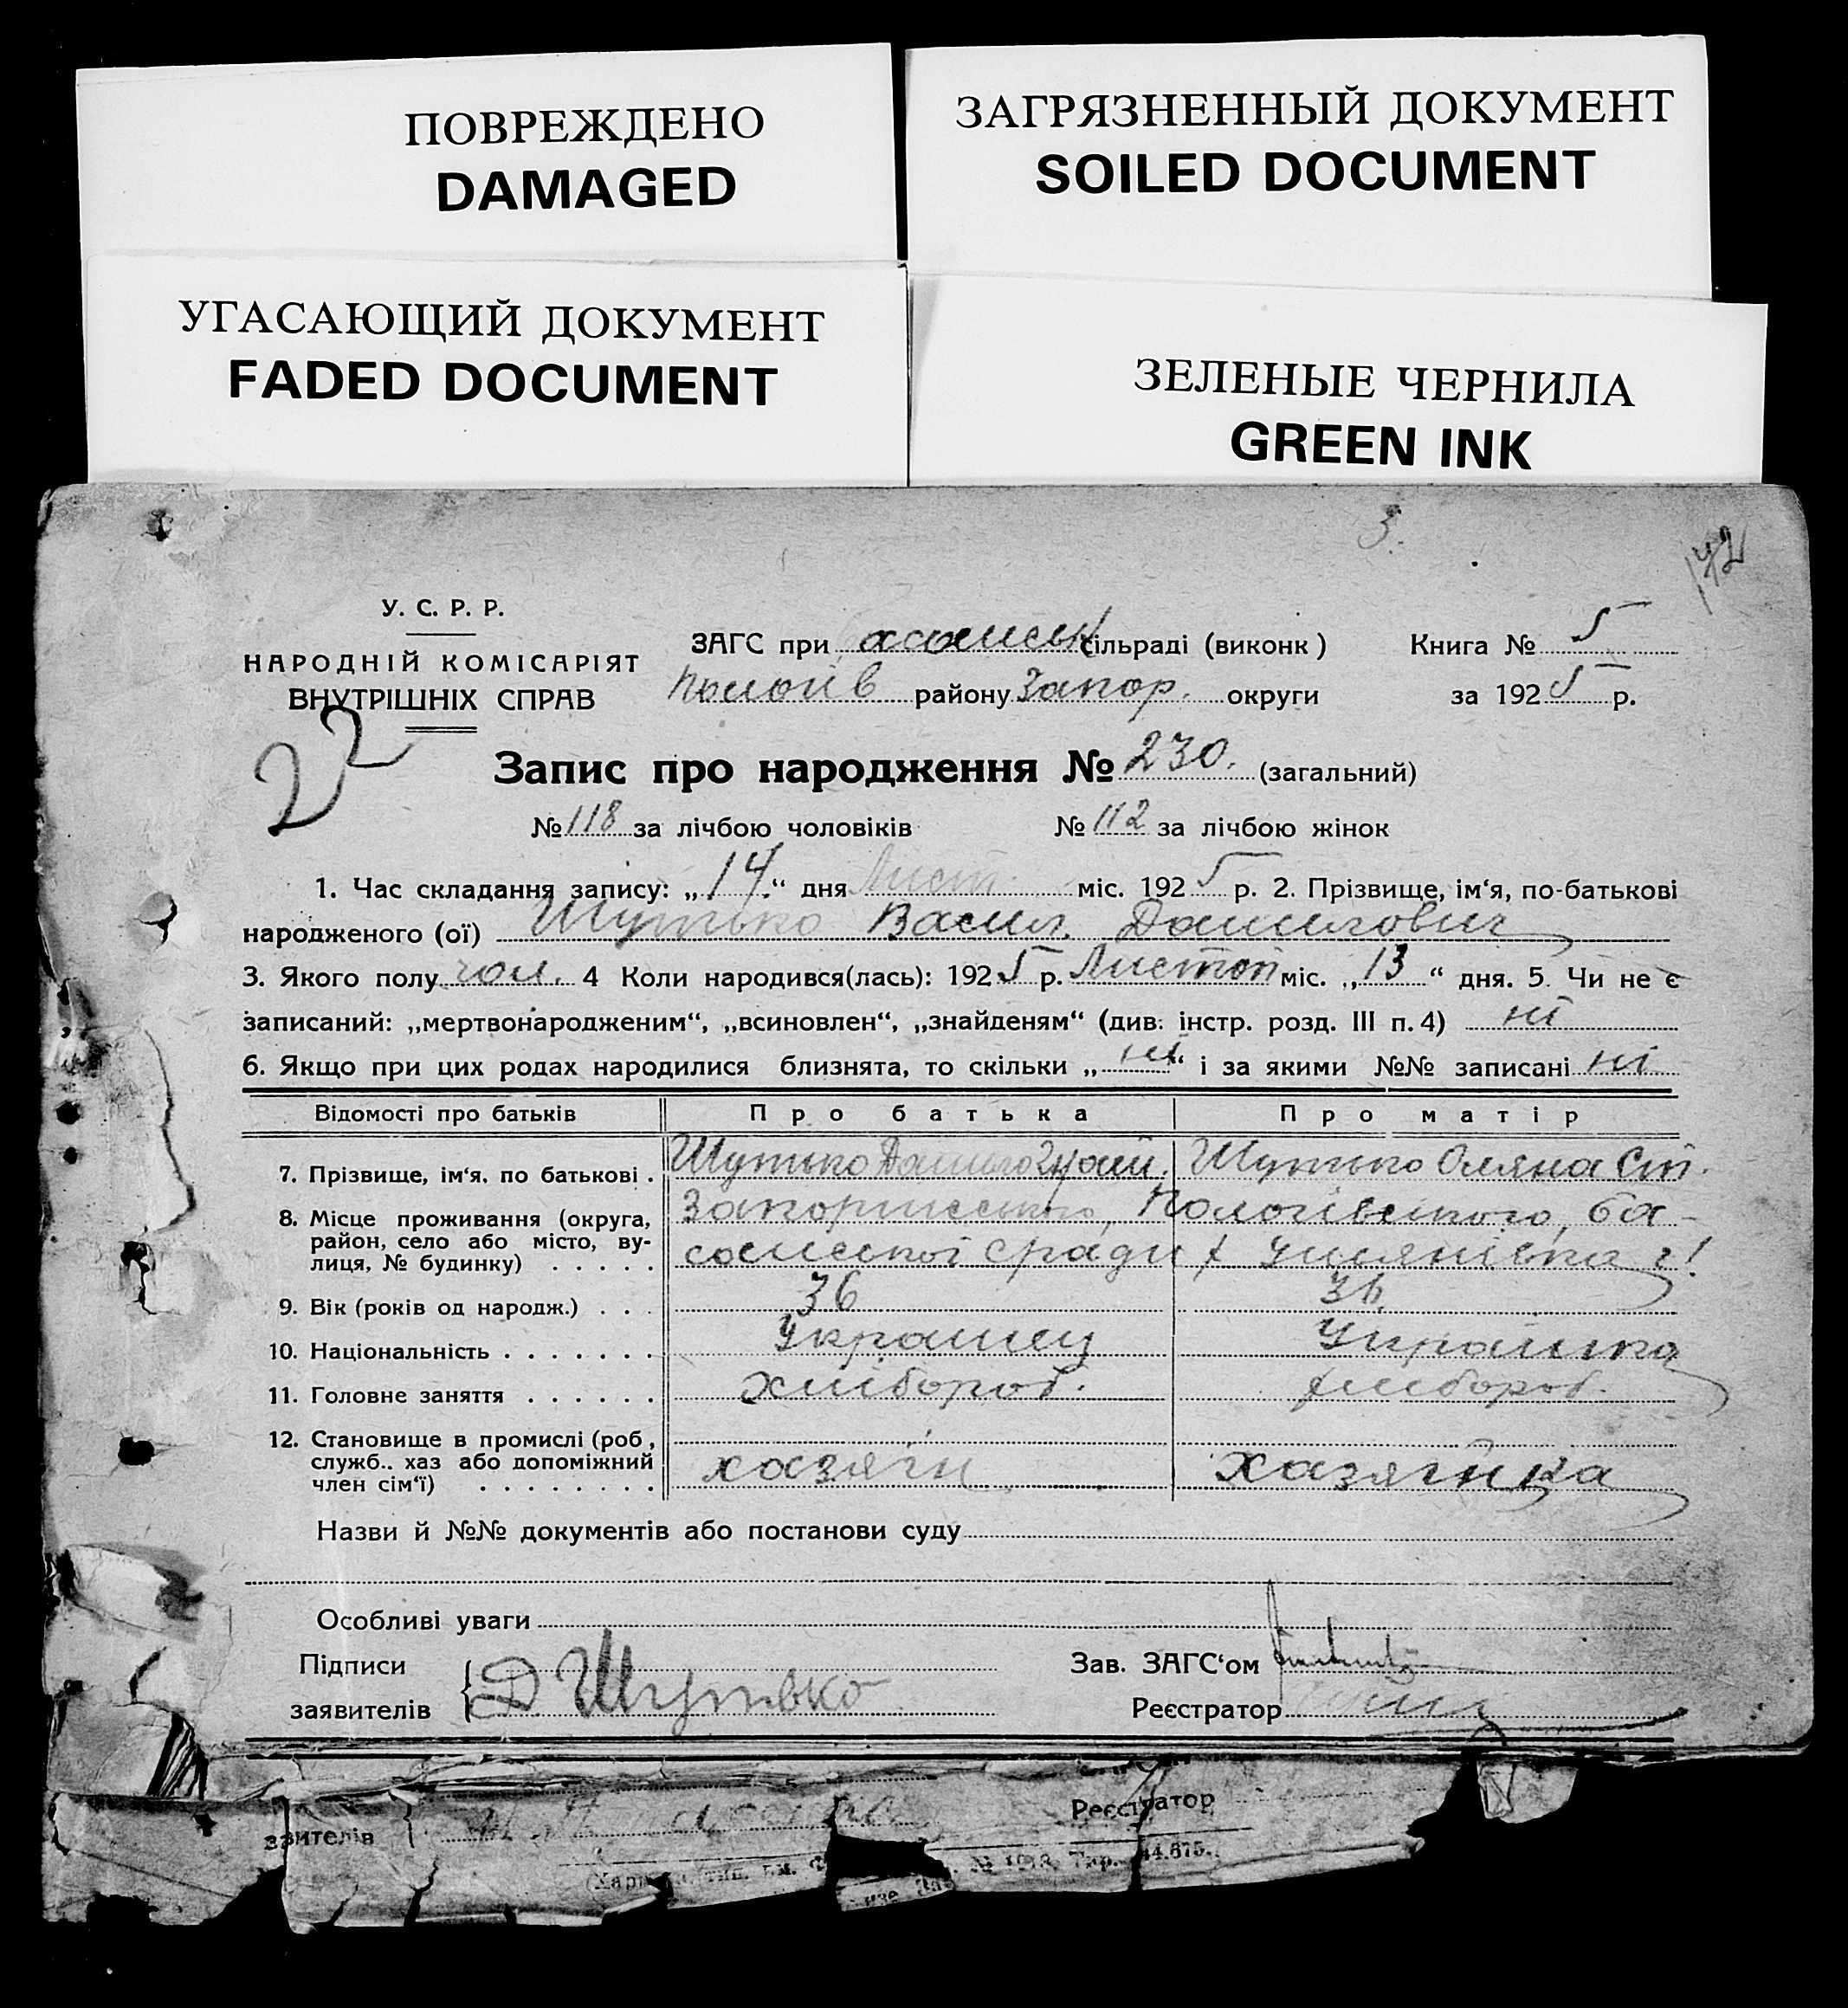 ПОВРЕЖДЕНО
DAMAGED
ЗАГРЯЗНЕННЫЙ ДОКУМЕНТ
SOILED DOCUMENT
УГАСАЮЩИЙ ДОКУМЕНТ
FADED DOCUMENT
ЗЕЛЕНЫЕ ЧЕРНИЛА
GREEN INK
3.
142
У. С. Р. Р.
НАРОДНІЙ КОМІСАРІЯТ
ВНУТРІШНІХ СПРАВ
22
ЗАГС при сільраді (виконк) Книга № 5
Пологів району Запор. округи за 1925 р.
Запис про народження № 230. (загальний)
№ 118 за лічбою чоловіків № 112 за лічбою жінок
1. Час складання запису: „14.“ дня Лист. міс. 1925 р. 2. Прізвище, ім‘я, по-батькові
народженого (ої) Шутько Васил. Данилович
3. Якого полу чол. 4 Коли народився(лась): 1925 р. Листоп міс. „13“ дня. 5. Чи не є
записаний: „мертвонародженим“, „всиновлен“, „знайденям“ (див. інстр. розд. III п. 4) ні
6. Якщо при цих родах народилися близнята, то скільки „ні“ і за якими №№ записані ні
Відомості про батьків Про батька Про матір
7. Прізвище, ім‘я. по батькові . Шутько Данило Шутько Оляна Ст.
8. Місце проживання (округа, Запоріжського, Пологівського, ба-
район, село або місто, ву- солиської сради х Ульянівка
лиця, № будинку) . . . . .
9. Вік (років од народж.) . . . 36 36
10. Національність . . . . . . . Українец Українка
11. Головне заняття . . . . . . Хлібороб. хлібороб.
12. Становище в промислі (роб,
служб.. хаз або допоміжний хазяїн хазяїнка
член сім‘ї) . . . . . . . .
Назви й №№ документів або постанови суду
Особливі уваги
Підписи Зав. ЗАГС‘ом
заявителів Д Шутько Реєстратор
зявителів Реєстратор